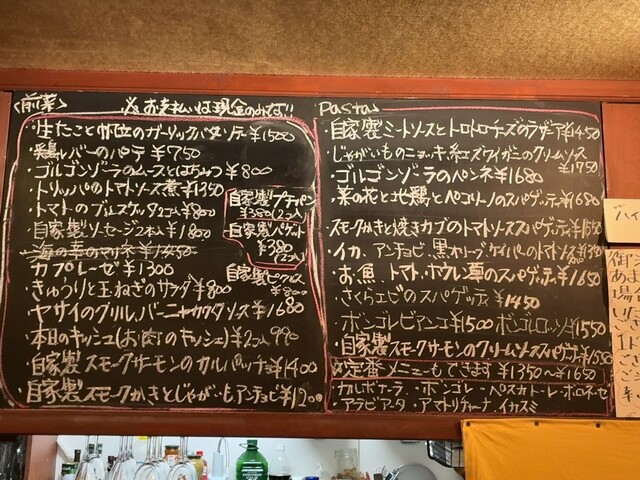 <前菜>
※お支払いは現金のみです!!
・生たこと帆立のガーリックバターソテー ¥1500
・鶏レバーのパテ ¥750
・ゴルゴンゾーラのムースとはちみつ ¥800
・トリッパのトマトソース煮 ¥1350
・トマトのブルスケッタ2コ入 ¥800
・自家製ソーセージ2本入 ¥1800
・海の幸のマリネ ¥1450
・カプレーゼ ¥1300
・きゅうりと玉ねぎのサラダ ¥800
・ヤサイのグリル、バーニャカウダソース ¥1680
・本日のキッシュ(お肉のキッシュ) ¥2コ入990
・自家製スモークサーモンのカルパッチョ ¥1400
・自家製スモークかきとじゃがいもアンチョビ ¥1200
自家製プチパン
¥380(2コ入)
自家製バゲット
¥380
(2コ入)
自家製ピクルス
¥800
Pasta
・自家製ミートソースとトロトロチーズのラザニア ¥1450
・じゃがいものニョッキ、紅ズワイガニのクリームソース
¥1750
・ゴルゴンゾーラのペンネ ¥1680
・菜の花と地鶏とペコリーノのスパゲッティ ¥1680
・スモークかきと焼きカブのトマトソーススパゲッティ
・イカ、アンチョビ、黒オリーブ、ケイパーのトマトソース
・お魚、トマト、ホウレン草のスパゲッティ ¥1650
・さくらエビのスパゲッティ ¥1450
・ボンゴレビアンコ ¥1500 ボンゴレロッソ ¥1550
・自家製スモークサーモンのクリームソーススパゲッティ ¥1550
定番メニューもできます ¥1350〜¥1650
・カルボナーラ・ボンゴレ・ペスカトーレ・ボロネーゼ
・アラビアータ・アマトリチャーナ・イカスミ